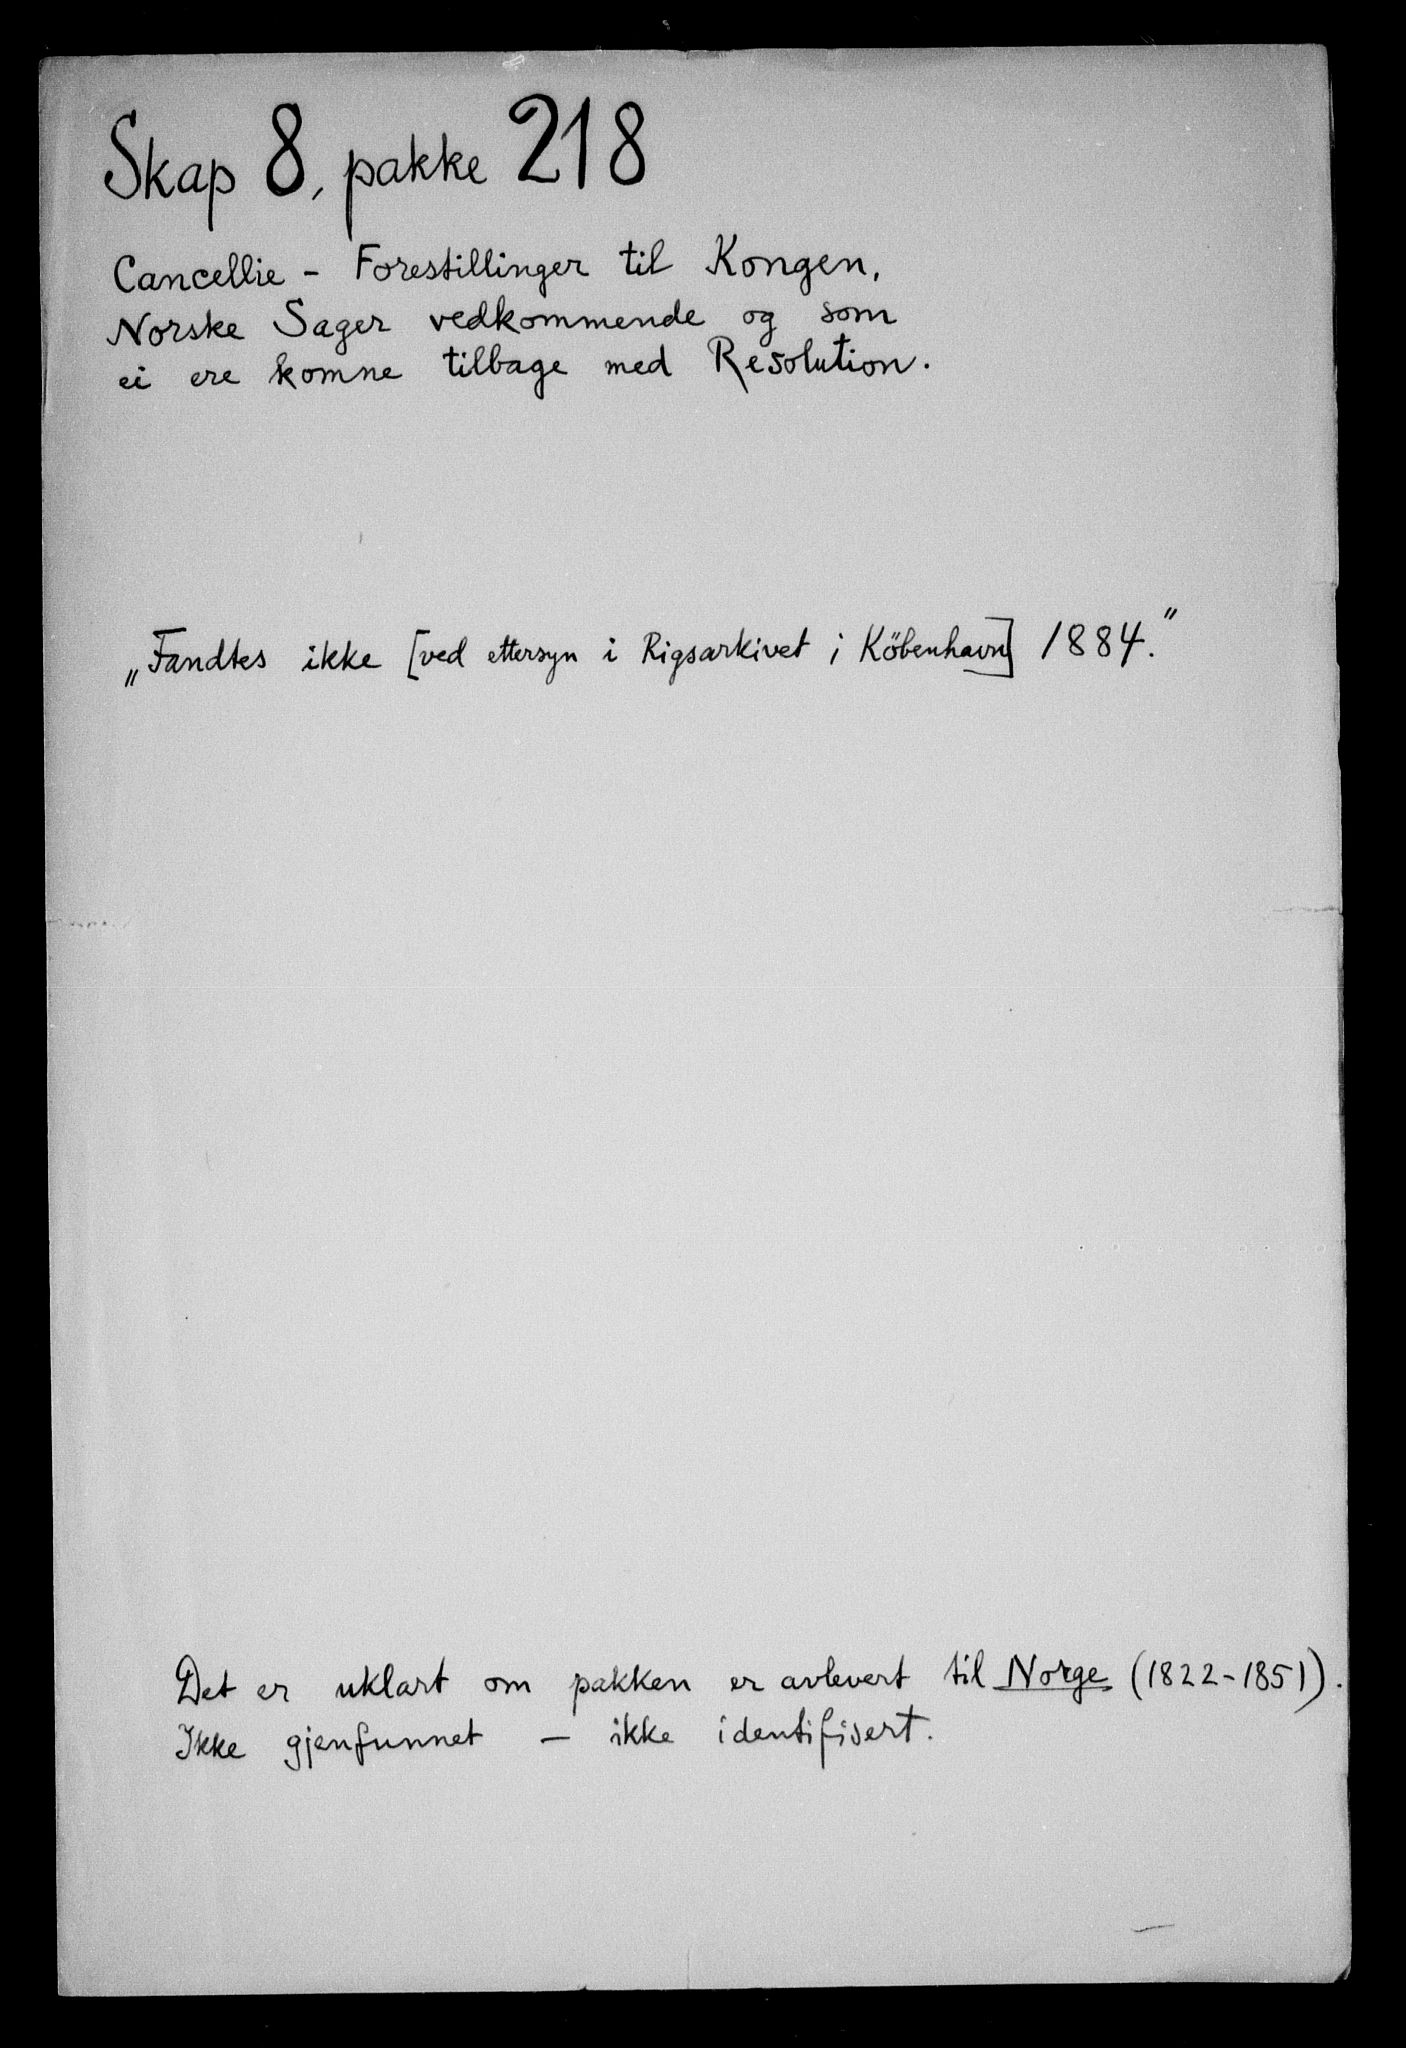 Skap 8, pakke 218
Cancellie - Forestillinger til Kongen,
Norske Sager vedkommende og som
ei ere komne tilbage med Resolution.
„Fandtes ikke [ved ettersyn i Rigsarkivet i Köbenhavn] 1884."
Det er uklart om pakken er avlevert til Norge (1822-1851).
Ikke gjenfunnet — ikke identifisert.